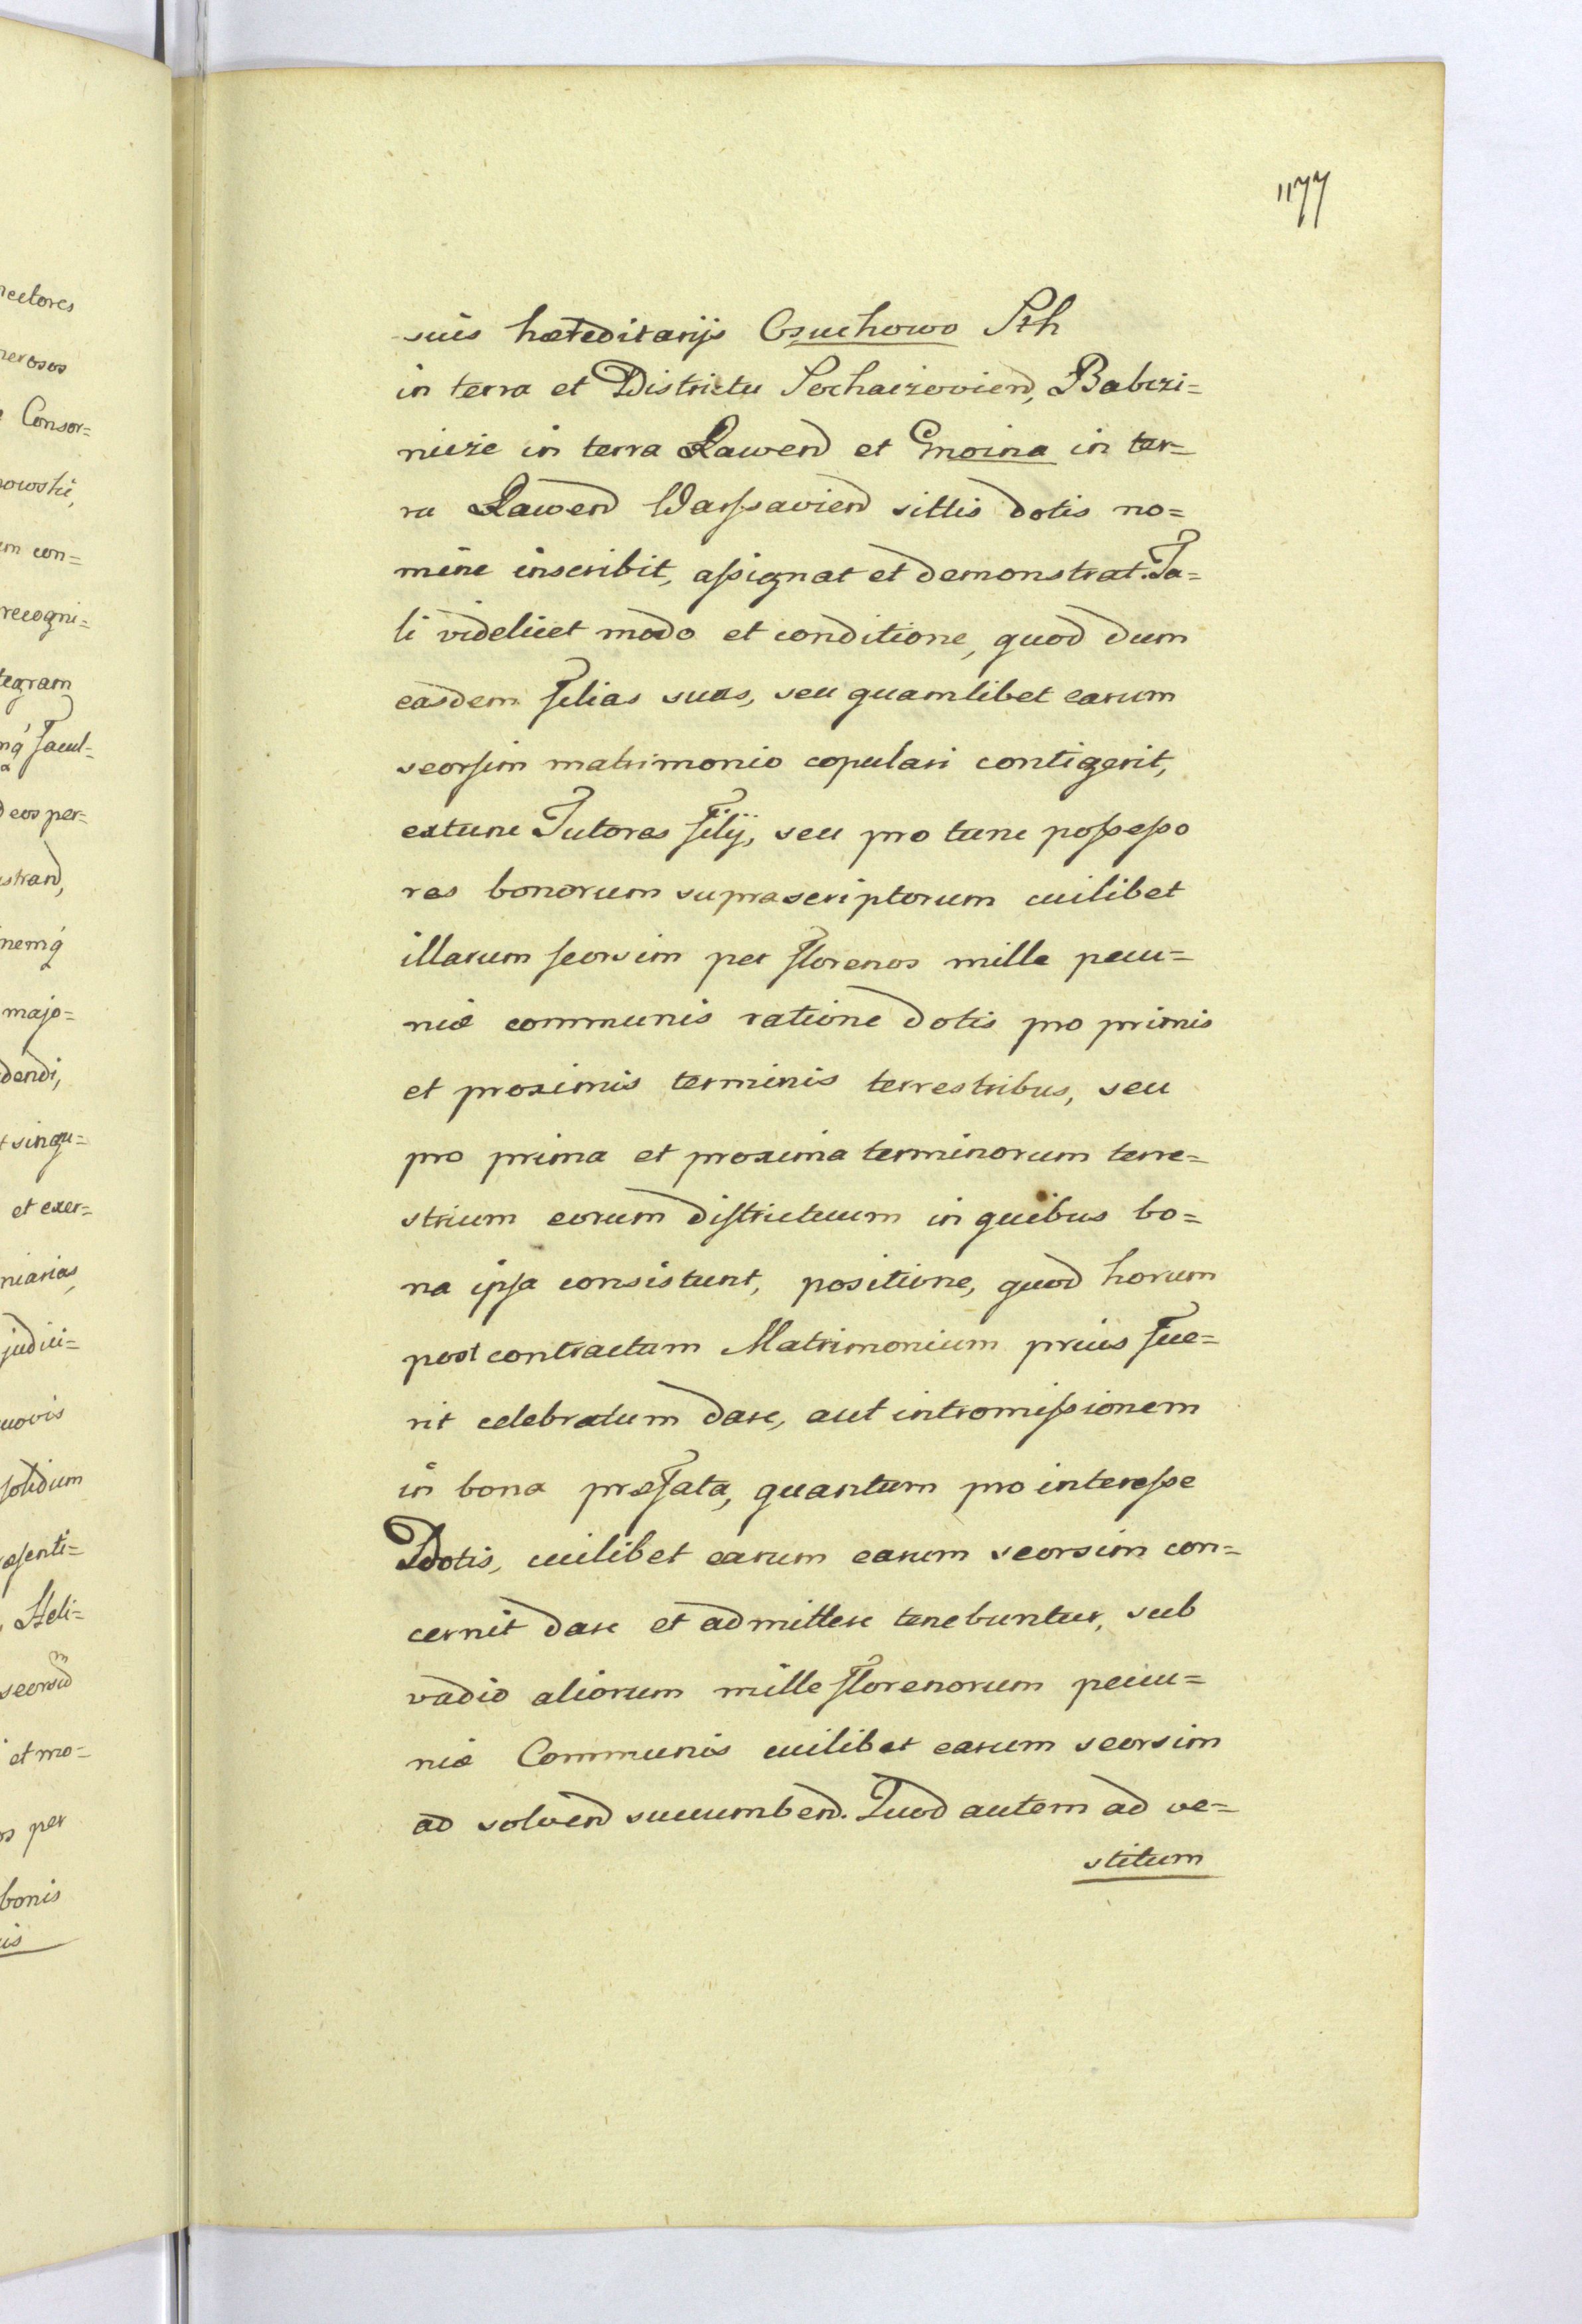 1177
suis hæreditarijs Osuchowo Sth
in terra et Districtu Sochaczovien, Babczi=
nieze in terra Rawen et Gnoina in ter=
ra Rawen Warssavien sittis dotis no=
mine inscribit, assignat et demonstrat. Ta=
li videlicet modo et conditione, quod dum
easdem filias suas, seu quamlibet earum
seorsim matrimonio copulari contigerit,
extunc Tutores filij, seu pro tunc possesso
res bonorum suprascriptorum cuilibet
illarum seorsim per florenos mille pecu=
niæ communis ratione dotis pro primis
et proximis terminis terrestribus, seu
pro prima et proxima terminorum terre=
strium eorum districtuum in quibus bo=
na ipsa consistunt, positione, quod horum
post contractum Matrimonium prius fue=
rit celebratum dare, aut intromissionem
in bona præfata, quantum pro interesse
Dotis, cuilibet earum earum seorsim con=
cernit dare et admittere tenebuntur, sub
vadio aliorum mille florenorum pecu=
niæ Communis cuilibet earum seorsim
ad solven succumben. Quod autem ad ve=
stitum